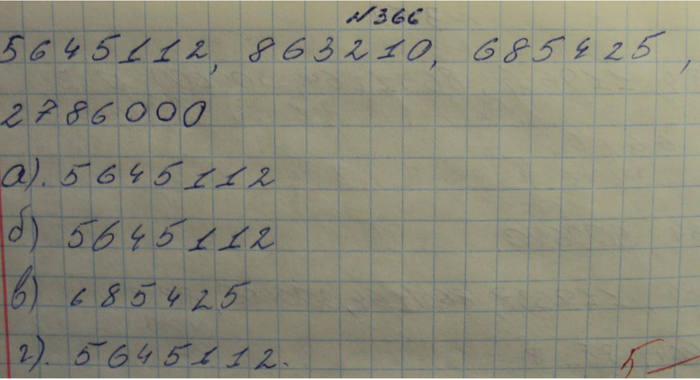 №366
5645112, 863210, 685425,
2786000
а). 5645112
б) 5645112
в) 685425
г). 5645112.
5